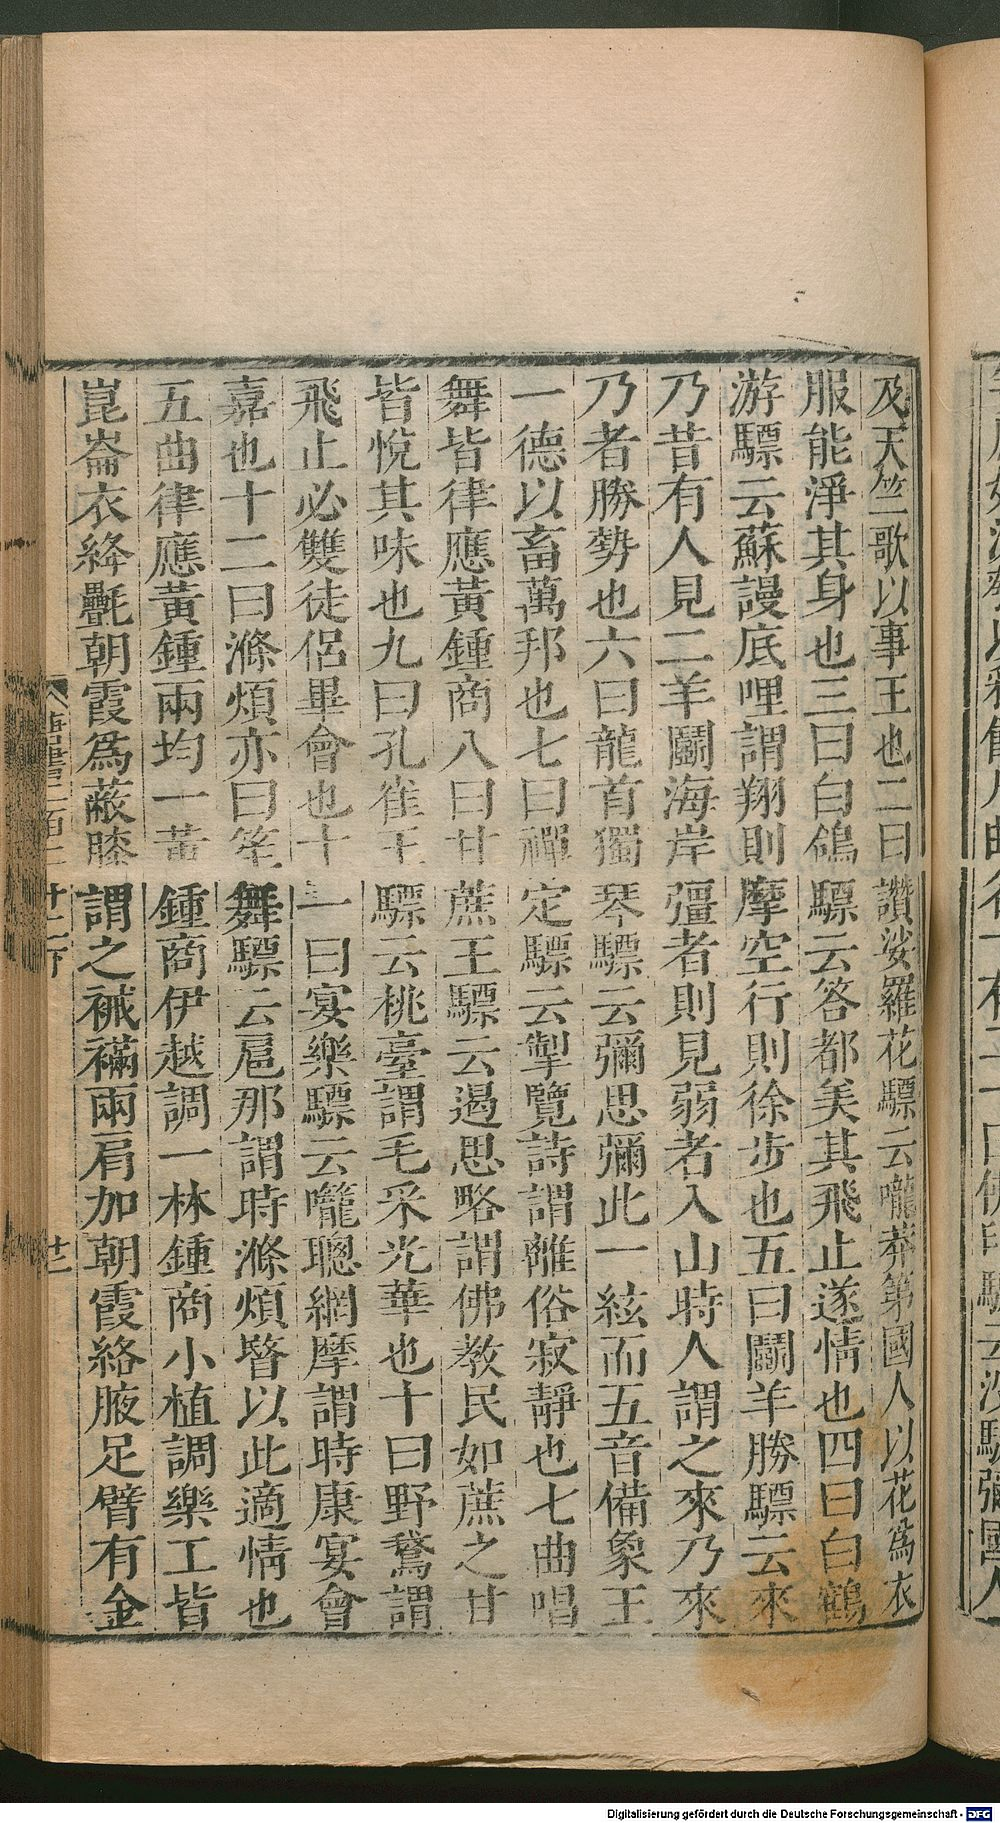 及天竺歌以事王也二曰讃娑羅花驃云嚨莽第國人以花爲衣
服能淨其身也三曰白鴿驃云答都美其飛止遂情也四曰白鶴
游驃云蘇謾底哩謂翔則摩空行則徐步也五曰鬭羊勝驃云來
乃昔有人見二羊鬭海岸彊者則見弱者入山時人謂之來乃來
乃者勝勢也六曰龍首獨琴驃云彌思彌此一絃而五音備象王
一德以畜萬邦也七曰禪定驃云掣覽詩謂離俗寂靜也七曲唱
舞皆律應黃鍾商八曰甘蔗王驃云遏思略謂佛教民如蔗之甘
皆悅其味也九曰孔雀王驃云桃臺謂毛采光華也十曰野鵞謂
飛止必雙徒侣畢會也十一曰宴樂驃云嚨聰網摩謂時康宴會
嘉也十二曰滌煩亦曰笙舞驃云扈那謂時滌煩暋以此適情也
五曲律應黃鍾兩均一黃鍾商伊越調一林鍾商小植調樂工皆
崑崙衣絳氎朝霞爲蔽膝謂之裓襔兩肩加朝霞絡腋足臂有金
唐書二百二十二下
廿二
Digitalisierung gefördert durch die Deutsche Forschungsgemeinschaft - DFG